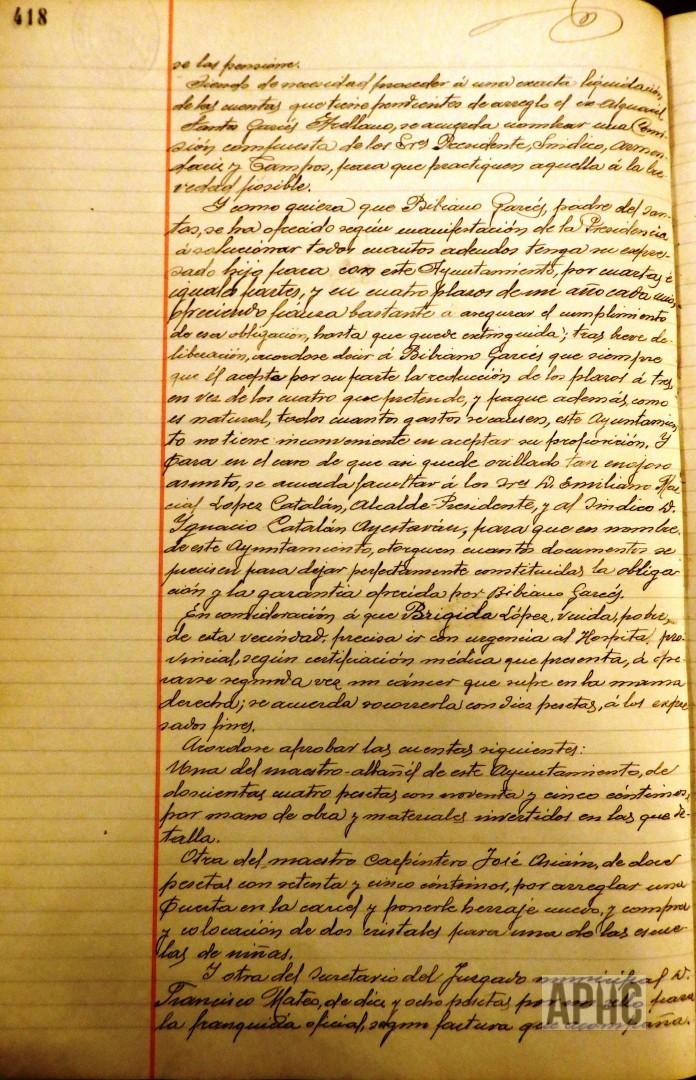 418
se las pensione.
Siendo de necesidad proceder á una exacta liquidación,
de las cuentas que tiene pendientes de arreglo el ex-Alguacil
Santos Garcés Arellano, se acuerda nombrar una Comi-
sión compuesta de los Sres Presidente, Sindico, Armen-
dariz y Campos, para que practiquen aquella á la bre-
vedad posible.
Y como quiera que Bibiano Garcés, padre del San-
tos, se ha ofrecido según manifestación de la Presidencia
á solucionar todos cuantos adeudos tenga su expre-
sado hijo para con este Ayuntamiento, por cuartas é
iguales partes, y en cuatro plazos de un año cada uno,
ofreciendo fianza bastante a asegurar el cumplimiento
de esa obligación, hasta que quede extinguida; tras breve de-
liberación, acordose decir á Bibiano Garcés que siempre
que él acepte por su parte la reducción de los plazos á tres,
en vez de los cuatro que pretende, y pague además, como
es natural, todos cuantos gastos se causen, este Ayuntamien-
to no tiene inconveniente en aceptar su proposición. Y
para en el caso de que asi quede orillado tan enojoso
asunto, se acuerda facultar á los Sres D. Emiliano Mar-
cial Lopez Catalán, Alcalde-Presidente, y al Sindico D.
Ygnacio Catalán Ayestarán, para que en nombre
de este Ayuntamiento, otorguen cuantos documentos se
precisen para dejar perfectamente constituidas la obliga-
ción y la garantia ofrecida por Bibiano Garcés.
En consideración á que Brigida López, viuda, pobre,
de esta vecindad, precisa ir con urgencia al Hospital pro-
vincial, según certificación médica que presenta, á ope-
rarse segunda vez un cáncer que sufre en la mama
derecha; se acuerda socorrerla con diez pesetas, á los expre-
sados fines.
Acordose aprobar las cuentas siguientes:
Una del maestro-albañil de este Ayuntamiento, de
doscientas cuatro pesetas con noventa y cinco céntimos,
por mano de obra y materiales invertidos en las que de-
talla.
Otra del maestro Carpintero José Asiáin, de doce
pesetas con setenta y cinco céntimos, por arreglar una
Puerta en la carcel y ponerle herraje nuevo, y compra
y colocación de dos cristales para una de las escue-
las de niñas.
Y otra del Secretario del Juzgado municipal D.
Francisco Mateo, de diez y ocho pesetas por sello para
la franquicia oficial, según factura que acompaña.
APHC